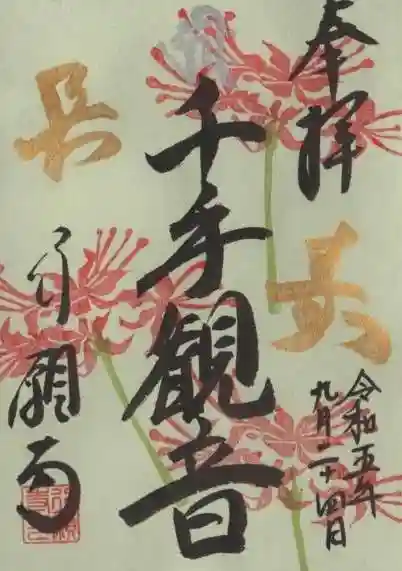 奉拝
令和五年
九月二十四日
千手観音
行願寺